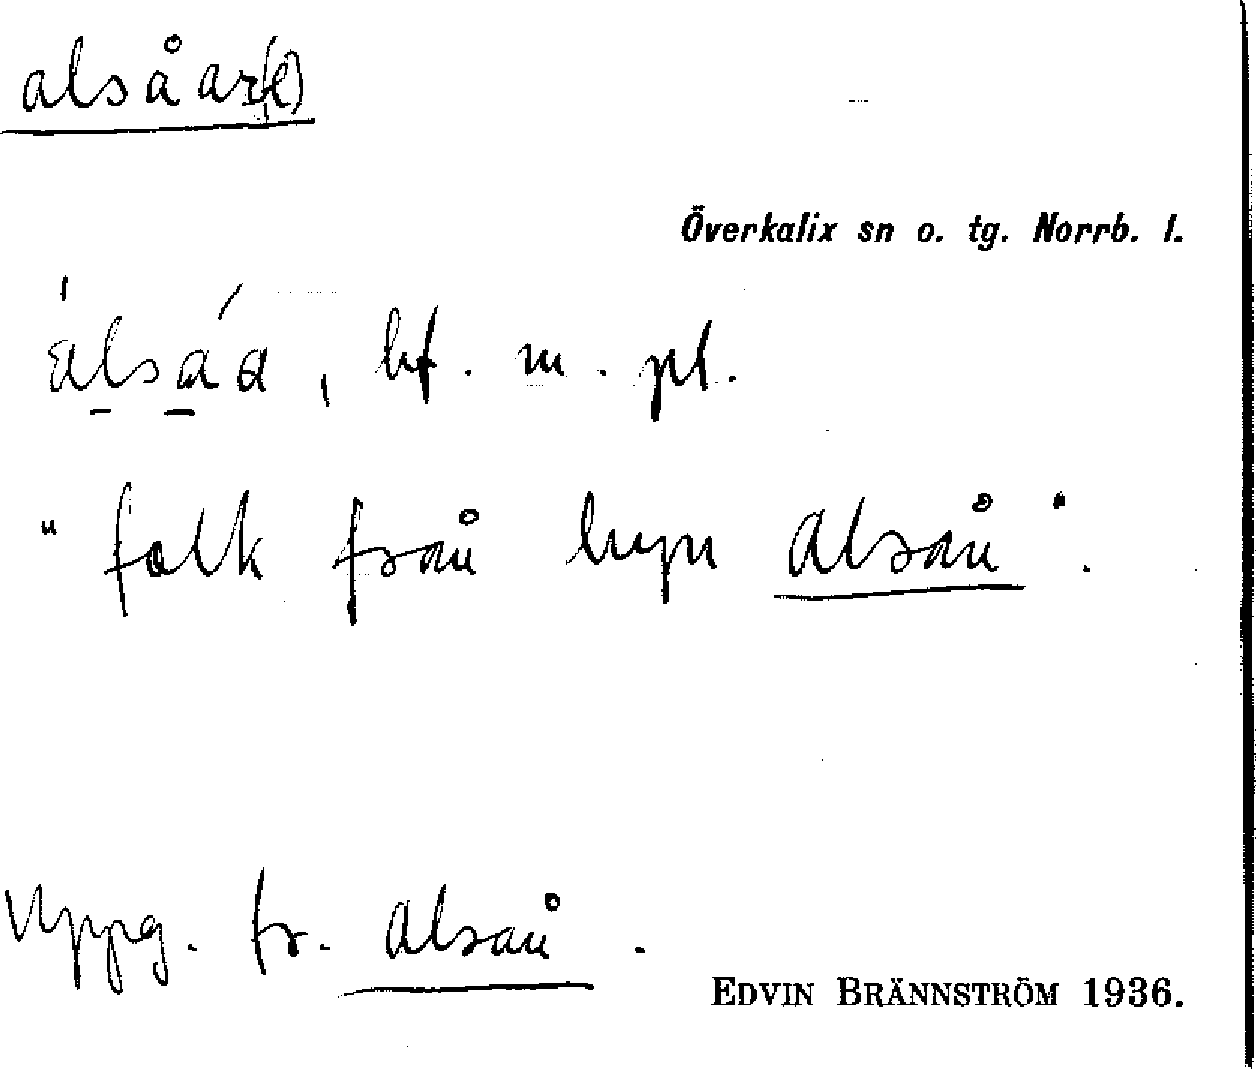 alsåar(e)
Överkalix sn o. tg. Norrb. l.
bf. m. pl.
"folk från byn Alsån".
Uppg. fr. Alsån.
EDVIN BRÄNNSTRÖM 1936.